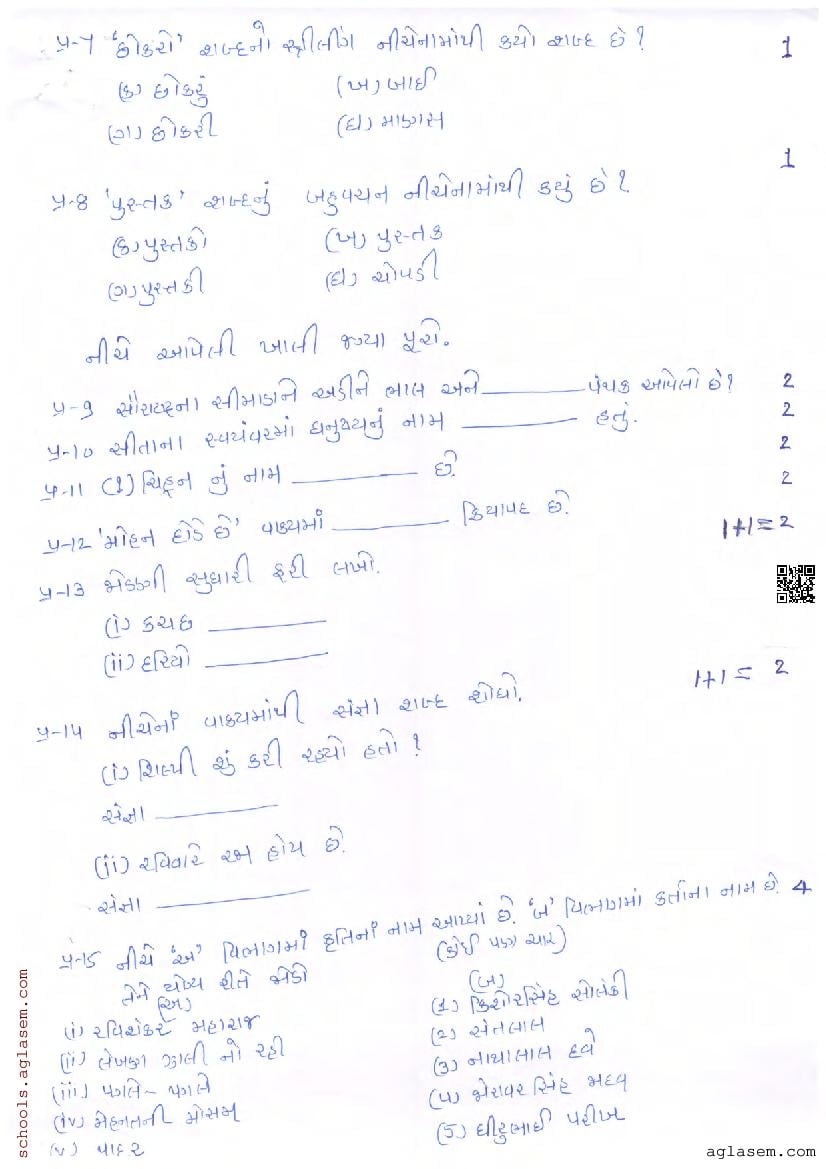 પ્ર-7 'છોકરો' શબ્દનો સ્ત્રીલીંગ નીચેનામાંથી કયો શબ્દ છે? 1
(ક) છોકરું (ખ) બાઈ
(ગ) છોકરી (ઘ) માણસ
1
પ્ર-8 'પુસ્તક' શબ્દનું બહુવચન નીચેનામાંથી કયું છે?
(ક) પુસ્તકો (ખ) પુસ્તક
(ગ) પુસ્તકી (ઘ) ચોપડી
નીચે આપેલી ખાલી જગ્યા પૂરો.
પ્ર-9 સૌરાષ્ટ્રના સીમાડાને અડીને ભાલ અને ________ પંથક આવેલો છે? 2
પ્ર-10 સીતાના સ્વયંવરમાં ધનુષ્યનું નામ ________ હતું. 2
2
પ્ર-11 (?) ચિહ્ન નું નામ ________ છે. 2
પ્ર-12 'મોહન દોડે છે' વાક્યમાં ________ ક્રિયાપદ છે.
પ્ર-13 જોડણી સુધારી ફરી લખો. 1+1=2
(i) કચછ ________
(ii) દરિયો ________
પ્ર-14 નીચેનાં વાક્યમાંથી સંજ્ઞા શબ્દ શોધો. 1+1= 2
(i) શિલ્પી શું કરી રહ્યો હતો?
સંજ્ઞા ________
(ii) રવિવારે રજા હોય છે.
સંજ્ઞા ________
પ્ર-15 નીચે 'અ' વિભાગમાં કૃતિનાં નામ આપ્યાં છે. 'બ' વિભાગમાં કર્તાના નામ છે. 4
તેને યોગ્ય રીતે જોડો (કોઈ પણ ચાર)
(અ) (બ)
(i) રવિશંકર મહારાજ (1) કિશોરસિંહ સોલંકી
(ii) લેખણ ઝાલી નો રહી (2) સંતલાલ
(iii) પગલે-પગલે (3) નાથાલાલ દવે
(iv) મેહનતની મોસમ (4) જોરાવરસિંહ જાદવ
(v) પાદર (5) ધીરુભાઈ પરીખ
schools.aglasem.com
aglasem.com